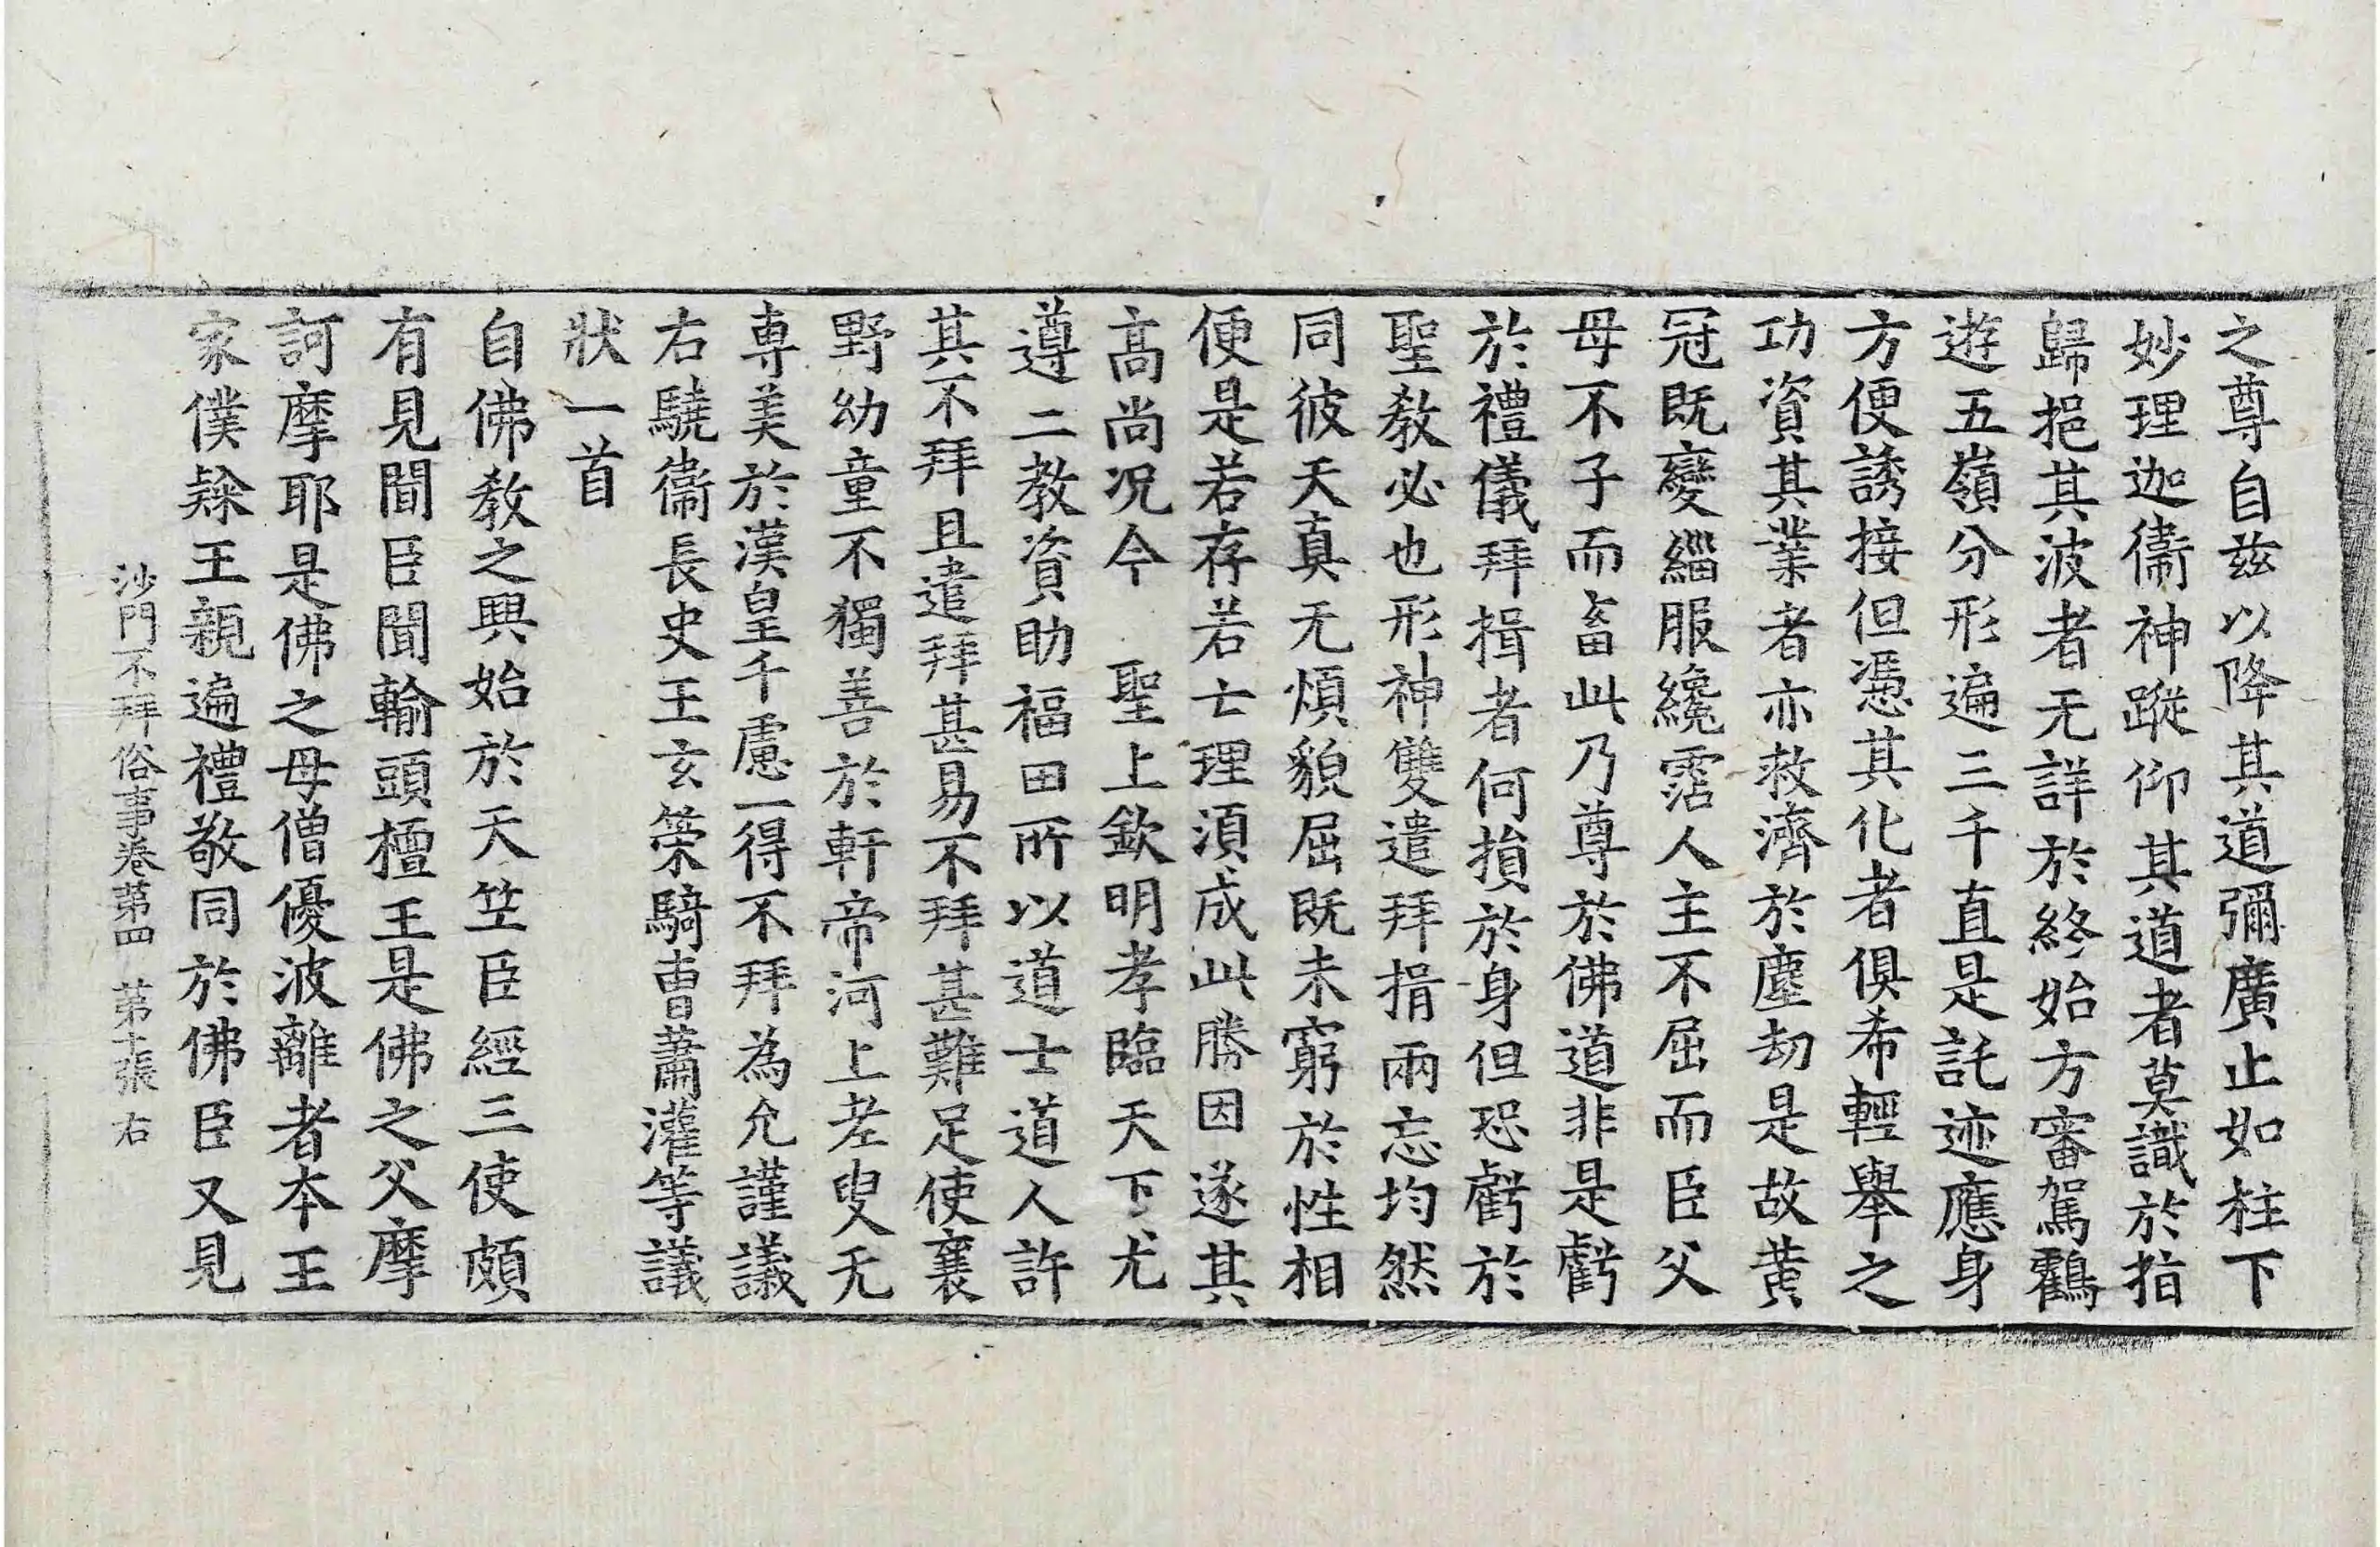 之尊自兹以降其道彌廣止如柱下
妙理迦衞神蹤仰其道者莫識於指
歸挹其波者无詳於終始方審駕鸖
遊五嶺分形遍三千直是託迹應身
方便誘接但憑其化者俱希輕舉之
功資其業者亦救濟於塵劫是故黄
冠既變緇服纔霑人主不屈而臣父
母不子而畜此乃尊於佛道非是虧
於禮儀拜揖者何損於身但恐虧於
聖教必也形神雙遣拜捐兩忘均然
同彼天真无煩貌屈既未窮於性相
便是若存若亡理須成此勝因遂其
高尚况今 聖上欽明孝臨天下尤
遵二教資助福田所以道士道人許
其不拜且遣拜甚易不拜甚難足使襄
野幼童不獨善於軒帝河上老叟无
專美於漢皇千慮一得不拜為允謹議
右驍衞長史王玄策騎曹蕭灌等議
狀一首
自佛教之興始於天笁臣經三使頗
有見聞臣聞輸頭檀王是佛之父摩
訶摩耶是佛之母僧優波離者本王
家僕𨽻王親遍禮敬同於佛臣又見
沙門不拜俗事卷第四 第十張 右